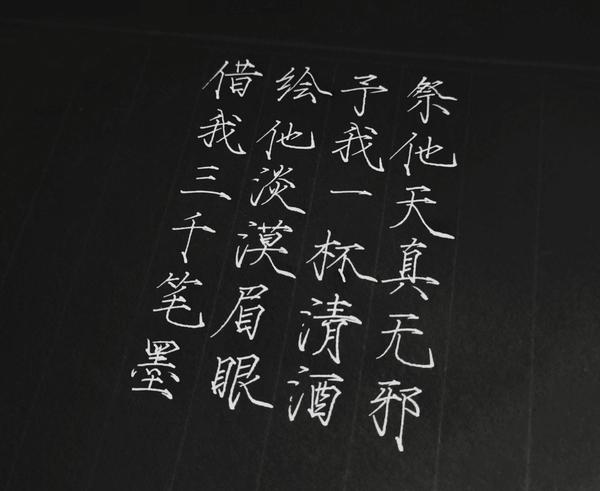 借我三千笔墨
绘他淡漠眉眼
予我一杯清酒
祭他天真无邪